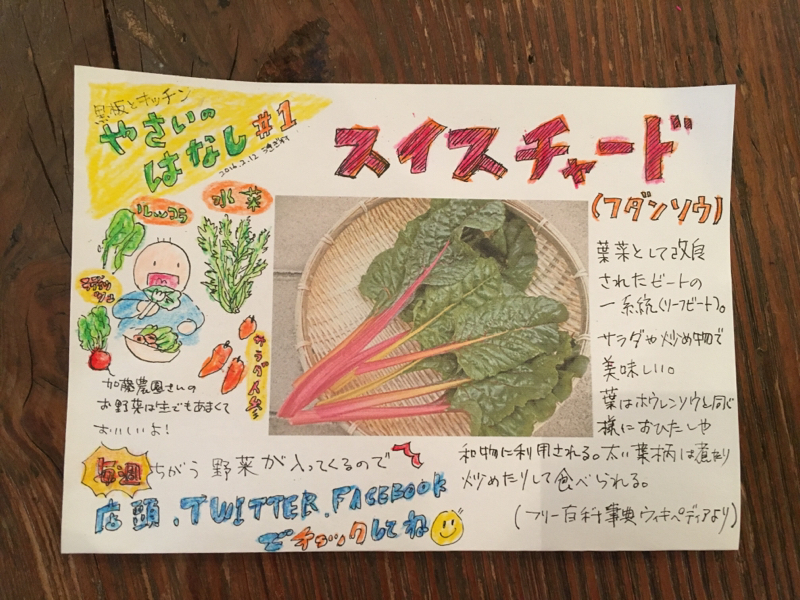 黒板とキッチン
やさいの
はなし#1
2016.2.12
スイスチャード
(フダンソウ)
ルッコラ
水菜
ラディッシュ
サラダ人参
加藤農園さんの
お野菜は生でもあまくて
おいしいよ!
葉菜として改良
されたビートの
一系統(リーフビート)。
サラダや炒め物で
美味しい。
葉はホウレンソウと同じ
様におひたしや
和物に利用される。太い葉柄は煮たり
炒めたりして食べられる。
(フリー百科事典ウィキペディアより)
毎週ちがう野菜が入ってくるので
店頭、TWITTER、FACEBOOK
でチェックしてね